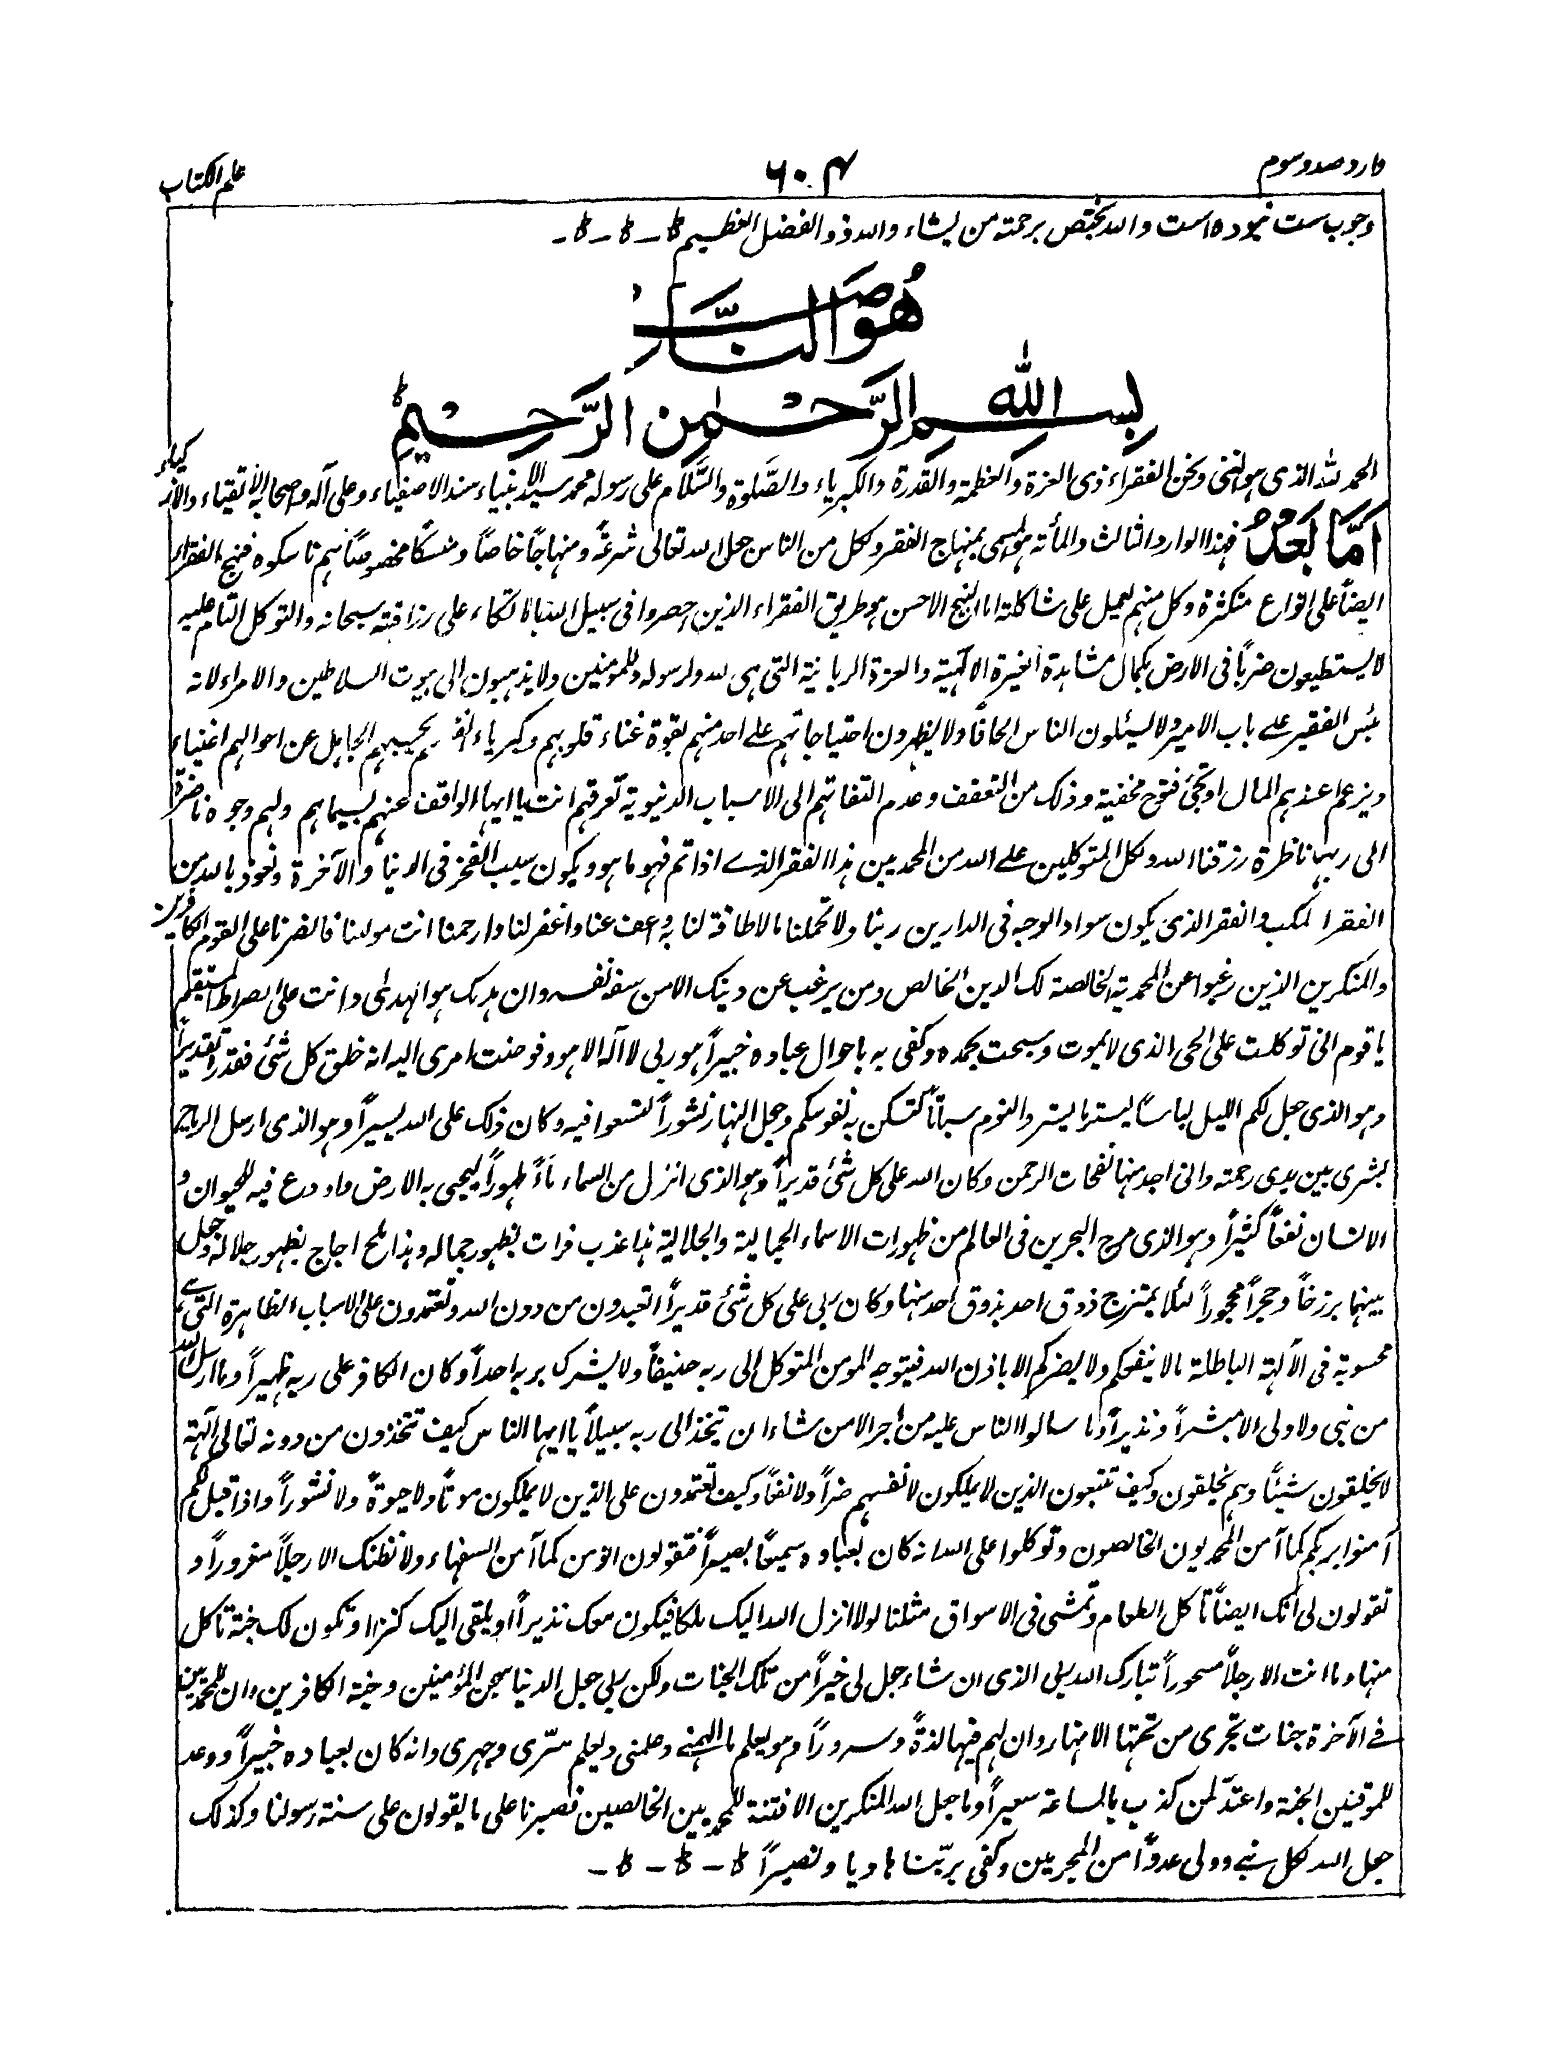 وارد صد و سوم ۶۰۴ علم الکتاب
وجوب ست نموده است والله یختص برحمته من یشاء والله ذو الفضل العظیم ط ـ ط ـ ط ـ
هو الناصر
بسم الله الرحمٰن الرحیم ط
الحمد لله الذی هو الغنی ونحن الفقراء ذی العزة والعظمة والقدرة والکبریاء والصَّلوة والسَّلام علی رسوله محمد سید الانبیاء سند الاصفیاء وعلی آله واصحابه الاتقیاء
اَمَّا بَعْدُ فهذا الوارد الثالث والمأته هو المسمی بمنهاج الفقر ولکل من الناس جعل الله تعالی شرعةً ومنهاجاً خاصاً ومنسکاً مخصوصاً هم ناسکوه فنهج الفقراء
ایضاً علی انواع متکثرة وکل منهم یعمل علی شاکلته اما النهج الاحسن هو طریق الفقراء الذین احصروا فی سبیل الله بالاتکاء علی رزاقیته سبحانه والتوکل التام علیه
لا یستطیعون ضرباً فی الارض بکمال مشاهدة الغیرة الآلهیة والعزة الربانیة التی هی لله ولرسوله وللمؤمنین ولا یذهبون الی بیوت السلاطین والامراء لانه
بئس الفقیر علے باب الامیر ولا یسئلون الناس الحافاً ولا یظهرون احتیاجاتهم علے احد منهم بقوة غناء قلوبهم وکبریاء یحسبهم الجاهل عن احوالهم اغنیاء
ویزعم اعندهم المال او تجئ فتوح مخفیة وذلک من التعفف وعدم التفاتهم الی الاسباب الدنیویة تعرفهم انت یا ایها الواقف عنهم بسیماهم ولهم وجوه ناضرة
الی ربها ناظرة رزقنا الله وکل المتوکلین علے الله من المحمدیین هذا الفقر الذے اذا تم فهو ما هو ویکون سبب الفخر فی الدنیا والآخرة ونعوذ بالله من
الفقر المکب والفقر الذی یکون سواد الوجه فی الدارین ربنا ولا تحملنا مالا طاقة لنا به واعف عنا واغفر لنا وارحمنا انت مولٰنا فانصرنا علی القوم الکافرین
والمنکرین الذین رغبوا عن المحمدیة الخالصة لک الدین الخالص ومن یرغب عن دینک الا من سفه نفسه وان هدیک هو الهدی وانت علی صراط مستقیم
یا قوم انی توکلت علی الحی الذی لا یموت وسبحت بحمده وکفی به باحوال عباده خبیراً هو ربی لا اله الا هو وفوضت امری الیه انه خلق کل شئ فقدره تقدیراً
وهو الذی جعل لکم اللیل لباساً یسترنا بستر والنوم سباتاً لتسکن به نفوسکم وجعل النهار نشوراً لتسعوا فیه وکان ذلک علی الله یسیراً وهو الذی ارسل الریاح
بشری بین یدی رحمته وانی اجد منها نفحات الرحمن وکان الله علی کل شئ قدیراً وهو الذی انزل من السماء ماءً طهوراً لیحیی به الارض واودع فیه للحیوان و
الانسان نفعاً کثیراً وهو الذی مرج البحرین فی العالم من ظهورات الاسماء الجمالیة والجلالیة هذا عذب فرات بظهور جماله وهذا ملح اجاج بظهور جلاله وجعل
بینهما برزخاً وحجراً محجوراً لئلا یمتزج ذوق احد بذوق احد منها وکان ربی علی کل شئ قدیراً اتعبدون من دون الله وتعتمدون علی الاسباب الظاهرة التی هے
محسوبة فی الآلهة الباطلة ما لا ینفعکم ولا یضرکم الا باذن الله فیتوجه المومن المتوکل الی ربه حنیفاً ولا یشرک بربه احداً وکان الکافر علی ربه ظهیراً وما ارسل الله
من نبی ولا ولی الا مبشراً ونذیراً وما سالوا الناس علیه من اجر الا من شاء ان یتخذ الی ربه سبیلاً یا ایها الناس کیف تتخذون من دونه تعالی آلهة
لا یخلقون شیئاً وهم یخلقون وکیف تتبعون الذین لا یملکون لانفسهم ضراً ولا نفعاً وکیف تعتمدون علی الذین لا یملکون موتاً ولا حیوةً ولا نشوراً واذا قیل لکم
آمنوا بربکم کما آمن المحمدیون الخالصون وتوکلوا علی الله انه کان بعباده سمیعاً بصیراً فتقولون انؤمن کما آمن السفهاء ولا نظنک الا رجلاً مغروراً و
تقولون لی انک ایضاً تاکل الطعام وتمشی فی الاسواق مثلنا لولا انزل الله الیک ملکا فیکون معک نذیراً او یلقی الیک کنز او تکون لک جنة تاکل
منها وما انت الا رجلاً مسحوراً تبارک الله ربی الذی ان شاء جعل لی خیراً من تلک الجنات ولکن ربی جعل الدنیا سجن المؤمنین وجنة الکافرین وان للمحمدیین
فی الآخرة جنات تجری من تحتها الانهار وان لهم فیها لذةً وسروراً وهو یعلم ما الهمنے وعلمنی ویعلم سرّی وجهری وانه کان بعباده خبیراً ووعد
للموقنین الجنة واعتدّ لمن کذب بالساعة سعیراً وما جعل الله المنکرین الا فتنة للمحمدیین الخالصین فصبرنا علی ما یقولون علی سنة رسولنا وکذلک
جعل الله لکل نبے وولی عدوّاً من المجرمین وکفی بربّنا هادیا ونصیراً ط ـ ط ـ ط ـ